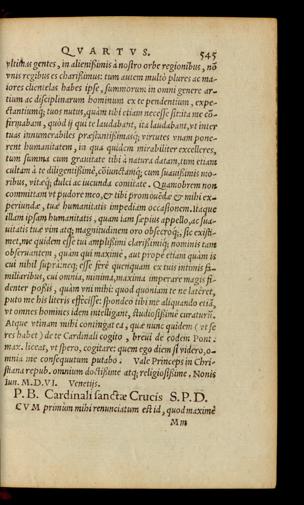 QVARTVS. 545
vltimas gentes, in alienißimis à nostro orbe regionibus, nō
vnis regibus es charißimus: tum autem multò plures ac ma-
iores clientelas habes ipse, summorum in omni genere ar-
tium ac disciplinarum hominum ex te pendentium, expe-
ctantiumq; tuos nutus, quàm tibi etiam necesse sit: ita me cō-
firmabam, quòd ij qui te laudabant, ita laudabant, vt inter
tuas innumerabiles præstantißimasq; virtutes vnam pone-
rent humanitatem, in qua quidem mirabiliter excelleres,
tum summa cum grauitate tibi à natura datam, tum etiam
cultam à te diligentißimè, cōiunctamq; cum suauißimis mo-
ribus, vitaq; dulci ac iucunda comitate. Quamobrem non
committam vt pudore meo, & tibi promouēdæ & mihi ex-
periundæ, tuæ humanitatis impediam occasionem. Itaque
illam ipsam humanitatis, quam iam sæpius appello, ac sua-
uitatis tuæ vim atq; magnitudinem oro obsecroq;, sic existi-
met, me quidem esse tui amplißimi clarißimiq; nominis tam
obseruantem, quàm qui maximè, aut prope etiam quàm is
cui nihil supra: neq; esse ferè quenquam ex tuis intimis fa-
miliaribus, cui omnia, minima, maxima imperare magis fi-
denter poßis, quàm vni mihi: quod quoniam te ne lateret,
puto me his literis effecisse: spondeo tibi me aliquando etiā,
vt omnes homines idem intelligant, studiosißimè curaturū.
Atque vtinam mihi contingat ea, quæ nunc quidem (vt se
res habet) de te Cardinali cogito, breui de eodem Pont.
max. liceat, vt spero, cogitare: quem ego diem si videro, o-
mnia me consequutum putabo. Vale Princeps in Chri-
stiana repub. omnium doctißime atq; religiosißime. Nonis
Iun. M.D.VI. Venetijs.
P. B. Cardinali sanctæ Crucis S.P.D.
CVM primùm mihi renunciatum est id, quod maximè
Mm